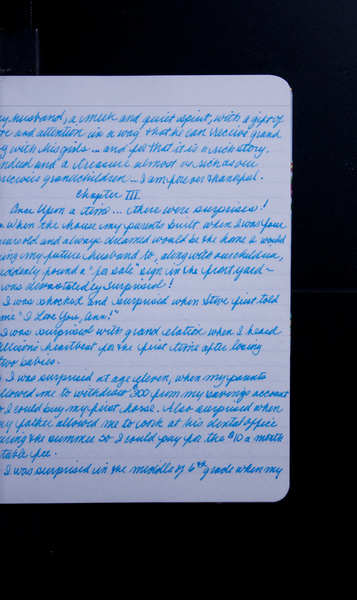 my husband, a meek and quiet spirit, with a gift of
and attention in a way that he can receive grand
with his girls... and yes that it is a rich story,
indeed and a treasure almost as rich as our
precious grandchildren... I am forever thankful.
Chapter III
Once Upon a time... there were surprises!
when the house my parents built when I was four
years old and always dreamed would be the home I would
bring my future husband to, along with our children,
suddenly found a "for sale" sign in the front yard –
I was devastatedly surprised!
I was shocked and surprised when Steve first told
me "I Love You, Ann!"
I was surprised with grand elation when I heard
William's heartbeat for the first time after losing
two babies.
I was surprised at age eleven, when my parents
allowed me to withdraw $300 from my savings account
so I could buy my first horse. Also surprised when
my father allowed me to work at his dental office
during the summer so I could pay for the $10 a month
stable fee.
I was surprised in the middle of 6th grade when my